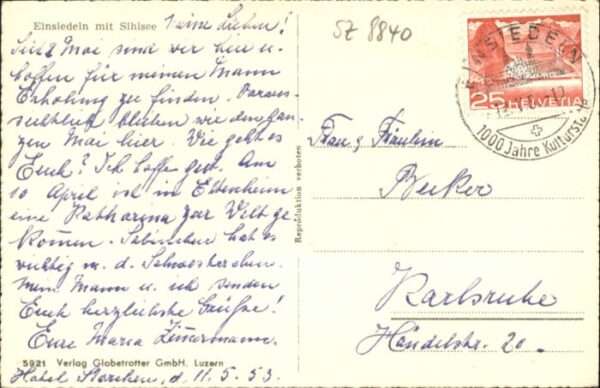 Einsiedeln mit Sihlsee
Meine Lieben!
Seit 2 Mai sind wir hier u.
hoffen für meinen Mann
Erholung zu finden. Voraus-
sichtlich bleiben wir den gan-
zen Mai hier. Wie geht es
Euch? Ich hoffe gut. Am
10 April ist in Ettenheim
eine Katharina zur Welt ge
kommen. Sabinchen hat es
wichtig m. d. Schwesterchen.
Mein Mann u. ich senden
Euch herzlichste Grüße!
Eure Maria Zimmermann.
5921 Verlag Globetrotter GmbH, Luzern
Hotel Storchen, d. 11.5.53.
Reproduktion verboten
SZ 8840
EINSIEDELN
25 HELVETIA
1000 Jahre Kulturstätte
Frau & Fräulein
Becker
Karlsruhe
Händelstr. 20.